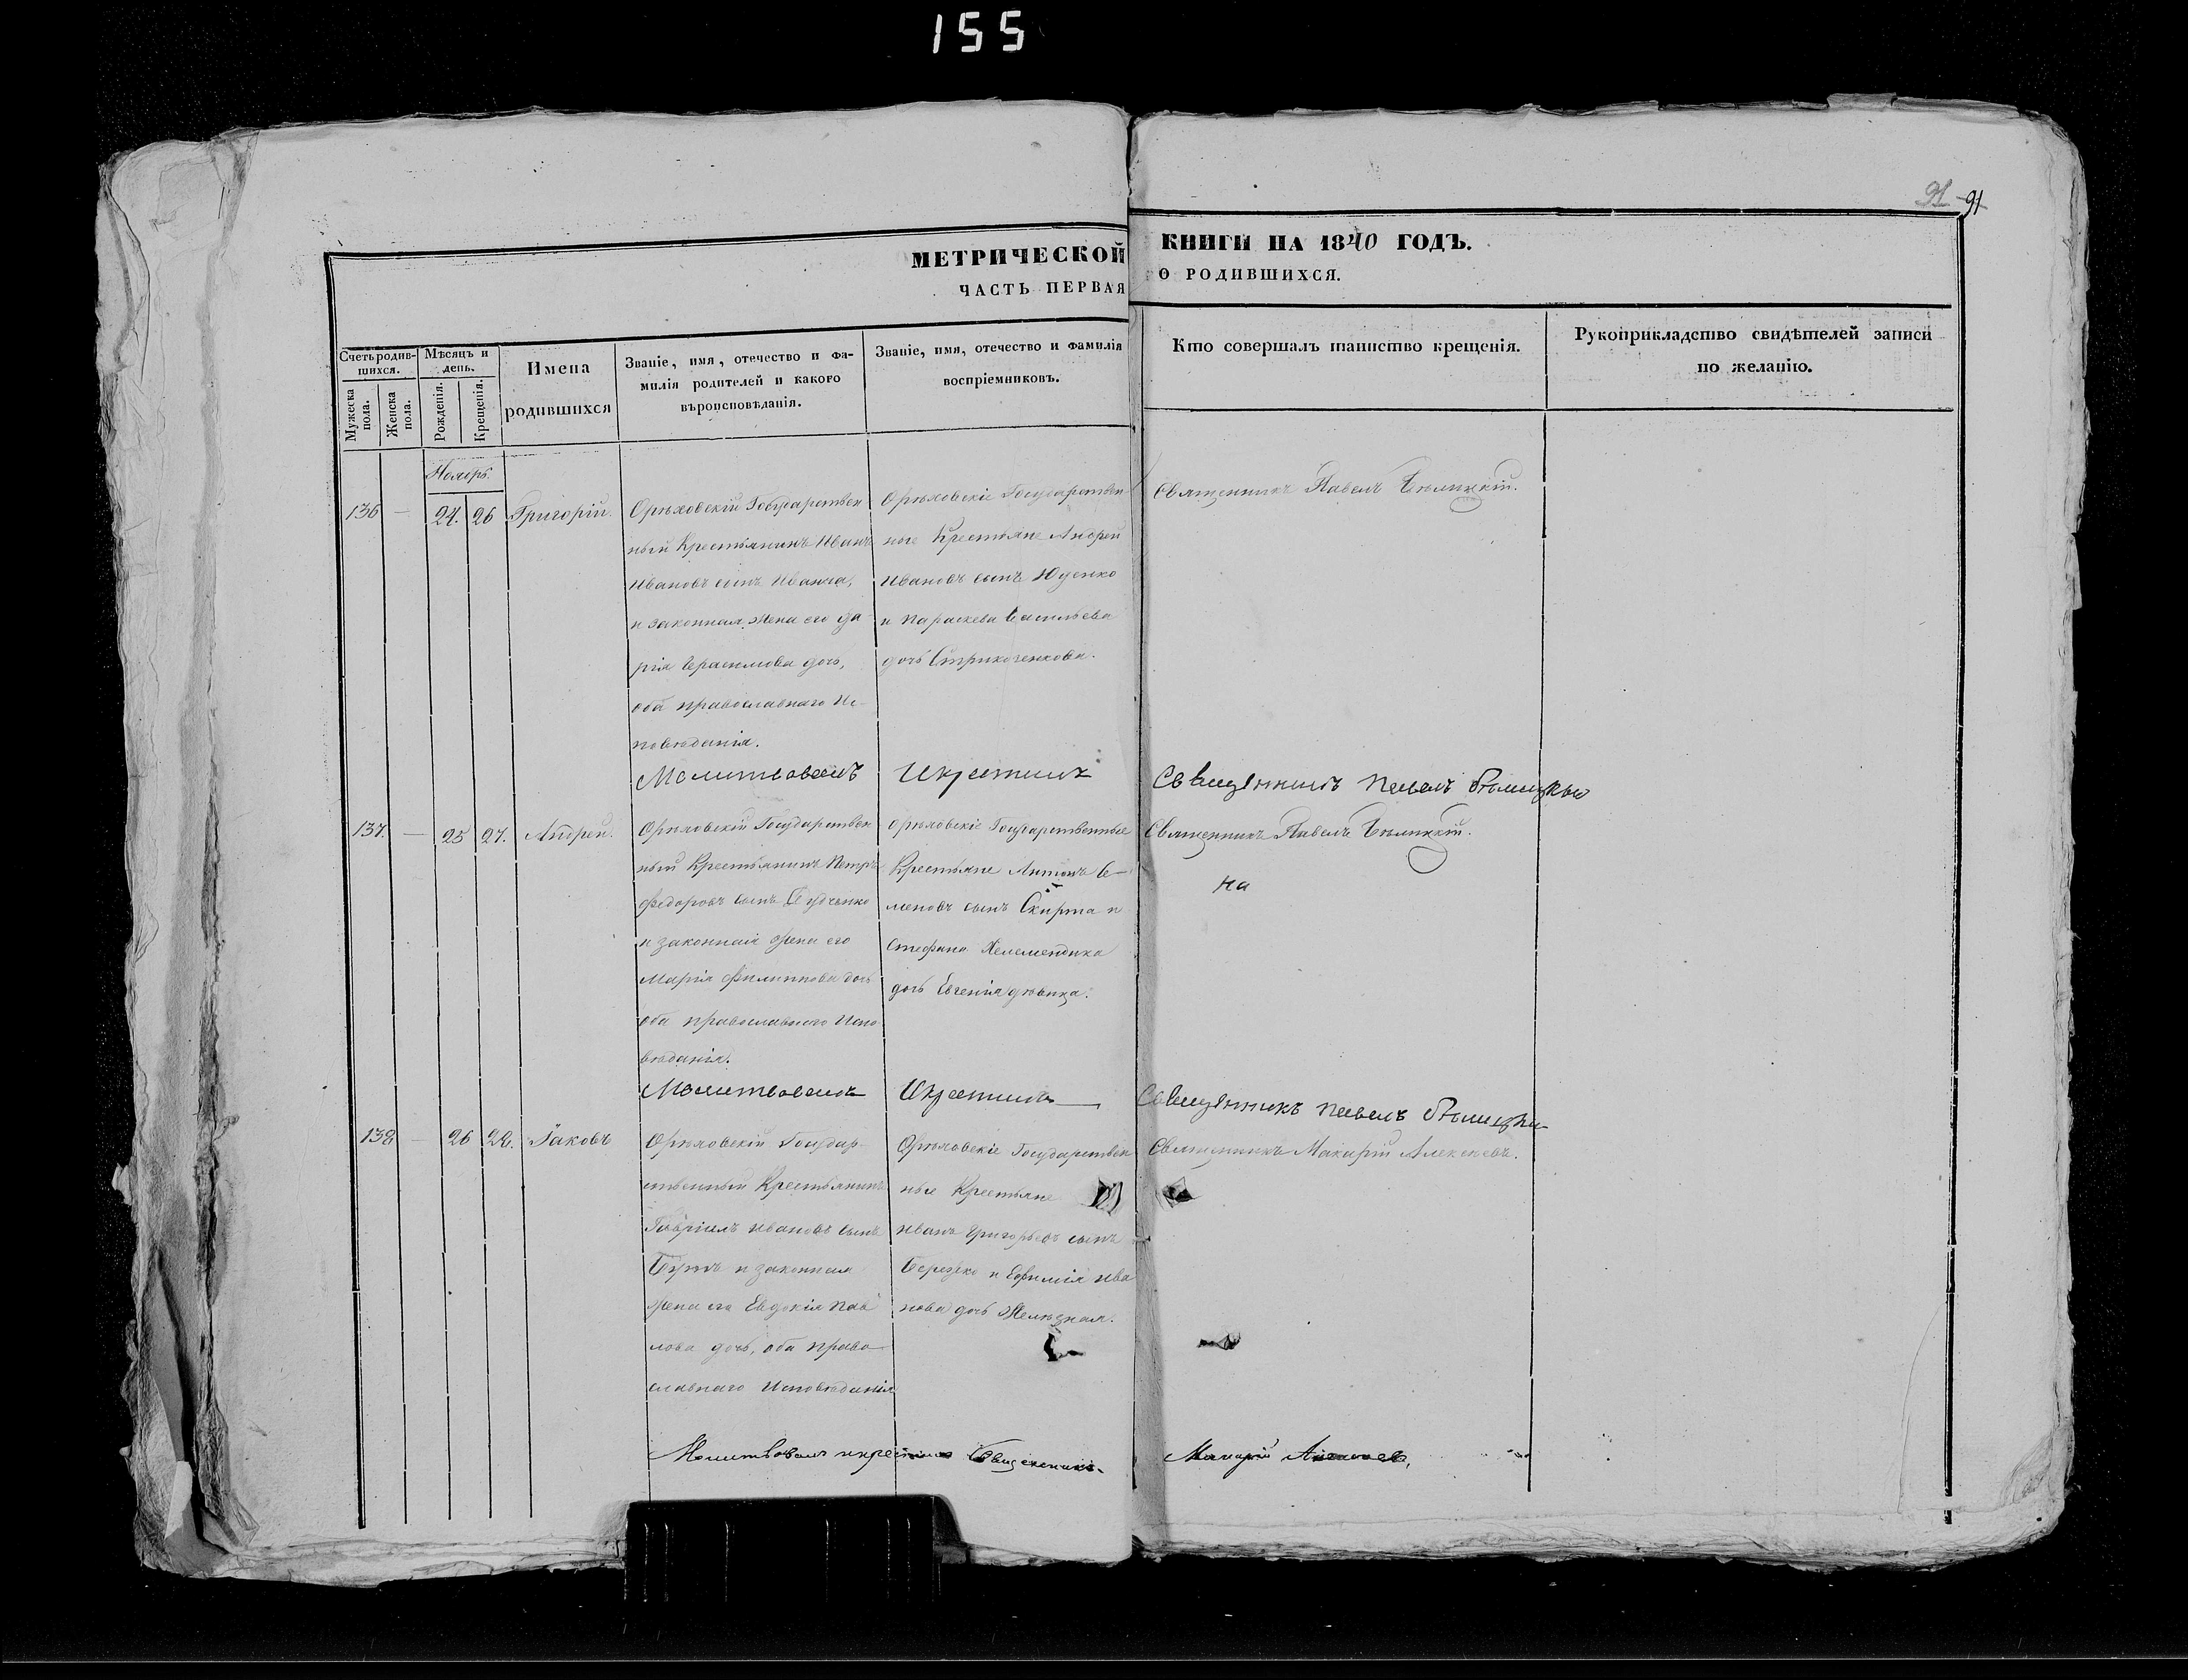 155
91 91
МЕТРИЧЕСКОЙ КНИГИ НА 1840 ГОДЪ.
ЧАСТЬ ПЕРВАЯ О РОДИВШИХСЯ.
Счетъ родив-
шихся.
Мужеска
пола.
Женска
пола.
Мѣсяцъ и
день.
Рожденія.
Крещенія.
Имена
родившихся
Званіе, имя, отечество и фа-
милія родителей и какого
вѣроисповѣданія.
Званіе, имя, отечество и фамилія
воспріемниковъ.
Кто совершалъ таинство крещенія.
Рукоприкладство свидѣтелей записи
по желанію.
Ноябрь.
136 — 24. 26 Григорій.
Орѣховскій Государствен
ный Крестьянинъ Иванъ
Ивановъ сынъ
и законная жена его Да-
рія Герасимова дочь,
оба православнаго Ис-
повѣданія.
Орѣховскіе Государствен-
ные Крестьяне Андрей
Ивановъ сынъ Юценко
и Параскева Васильева
дочь
Священникъ Павелъ Бѣлицкій.
Молитвовалъ Икрестилъ Священникъ Павелъ
137. — 25 27. Андрей.
Орѣховскій Государствен
ный Крестьянинъ Петръ
Федоровъ сынъ
и законная жена его
Марія Филиппова дочь
оба православнаго Испо
вѣданія.
Орѣховскіе Государственные
Крестьяне Антонъ Се-
меновъ сынъ Скирта и
Стефана
дочь Евгенія дѣвица.
Священникъ Павелъ Бѣлицкій.
на
Молитвовалъ Икрестилъ Священникъ Павелъ
138 — 26 Іаковъ
Орѣховскій Государ-
ственный Крестьянинъ
Гавріилъ Ивановъ сынъ
и законная
жена его Евдокія Пав
лова дочь, оба право-
славнаго Исповѣданія
Орѣховскіе Государствен
ные Крестьяне
Иванъ Григорьевъ сынъ
и Евфимія Ива
нова дочь Желѣзная.
Священникъ Макарій Алексѣевъ.
Молитвовалъ икрестилъ Священникъ Макарій